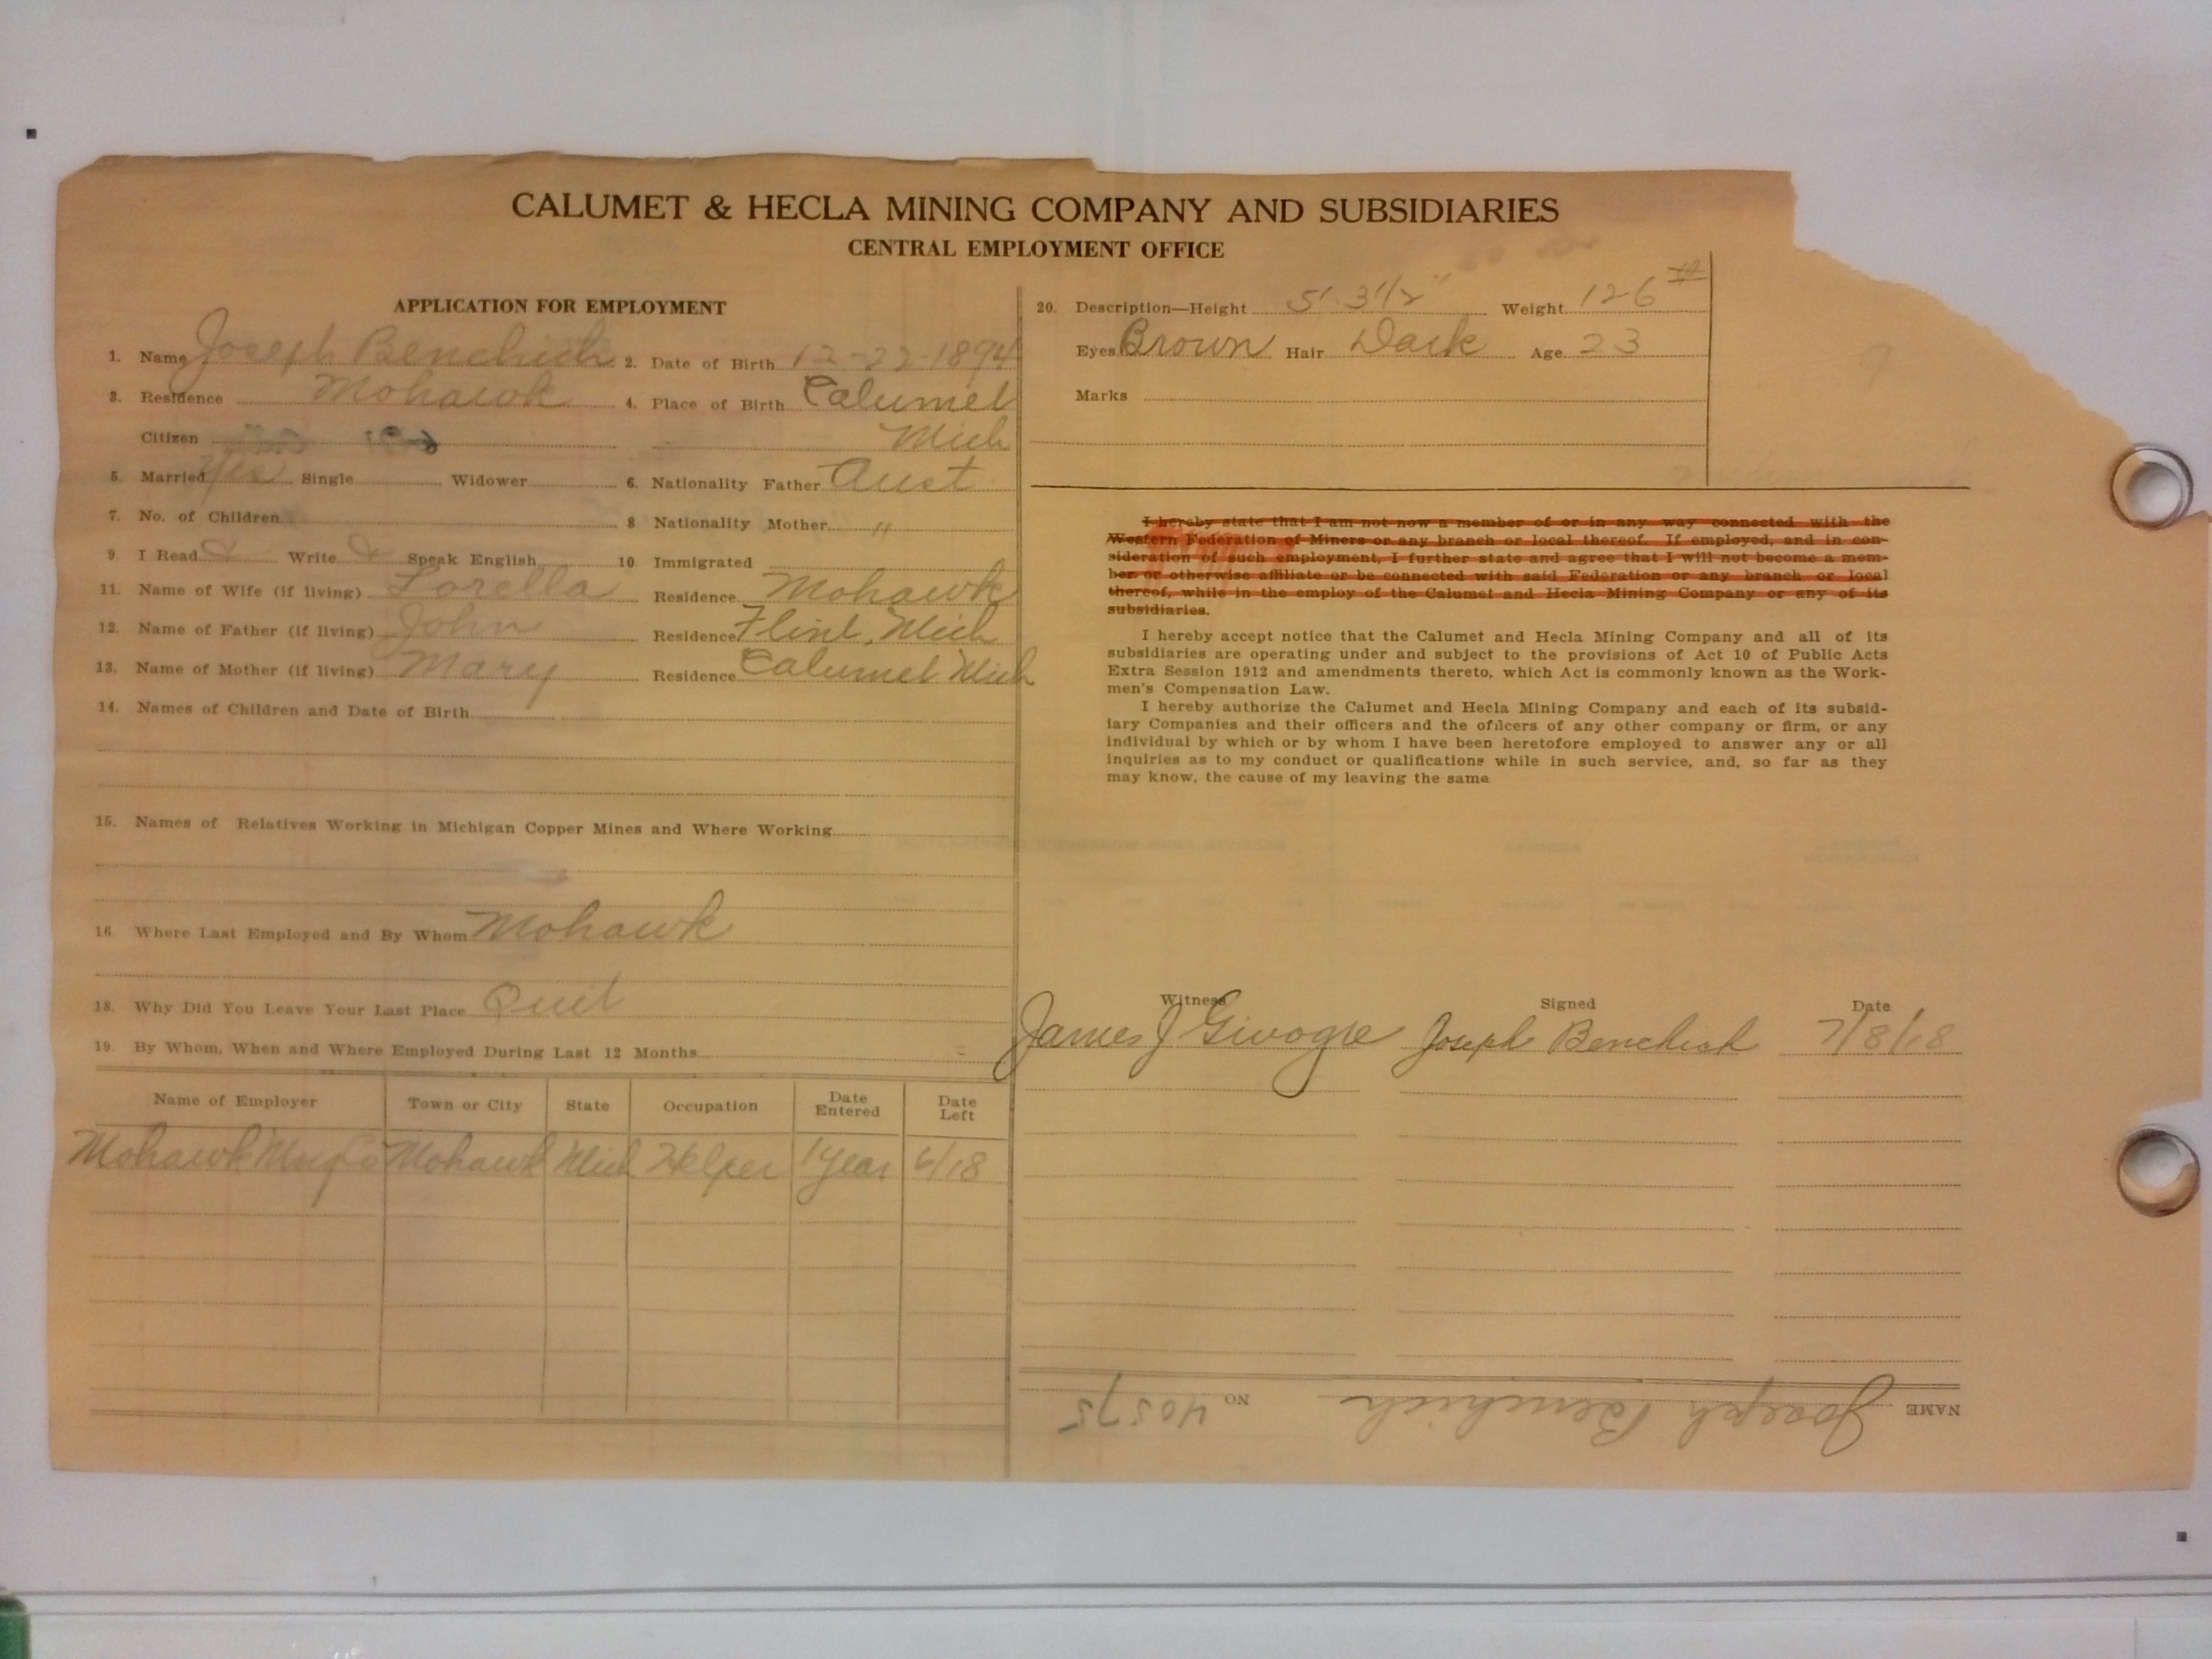 CALUMET & HECLA MINING COMPANY AND SUBSIDIARIES
CENTRAL EMPLOYMENT OFFICE
APPLICATION FOR EMPLOYMENT
1. Name Joseph Benchich 2. Date of Birth 12-22-1894
3. Residence Mohawk 4. Place of Birth Calumet
Citizen Mich
5. Married Yes Single Widower 6. Nationality Father Aust
7. No. of Children 8 Nationality Mother "
9. I Read Write Speak English 10 Immigrated
11. Name of Wife (if living) Lorella Residence Mohawk
12. Name of Father (if living) John Residence Flint, Mich
13. Name of Mother (if living) Mary Residence Calumet Mich
14. Names of Children and Date of Birth
15. Names of Relatives Working in Michigan Copper Mines and Where Working
16. Where Last Employed and By Whom Mohawk
18. Why Did You Leave Your Last Place Quit
19. By Whom, When and Where Employed During Last 12 Months
Name of Employer Town or City State Occupation Date Entered Date Left
Mohawk Mng Co Mohawk Mich Helper 1 year 6/18
20. Description—Height 5' 3 1/2" Weight 126 #
Eyes Brown Hair Dark Age 23
Marks
I hereby state that I am not now a member of or in any way connected with the
Western Federation of Miners or any branch or local thereof. If employed, and in con-
sideration of such employment, I further state and agree that I will not become a mem-
ber or otherwise affiliate or be connected with said Federation or any branch or local
thereof, while in the employ of the Calumet and Hecla Mining Company or any of its
subsidiaries.
I hereby accept notice that the Calumet and Hecla Mining Company and all of its
subsidiaries are operating under and subject to the provisions of Act 10 of Public Acts
Extra Session 1912 and amendments thereto, which Act is commonly known as the Work-
men's Compensation Law.
I hereby authorize the Calumet and Hecla Mining Company and each of its subsid-
iary Companies and their officers and the officers of any other company or firm, or any
individual by which or by whom I have been heretofore employed to answer any or all
inquiries as to my conduct or qualifications while in such service, and, so far as they
may know, the cause of my leaving the same
Witness Signed Date
James J Joseph Benchich 7/8/18
NAME Joseph Benchich NO 40575